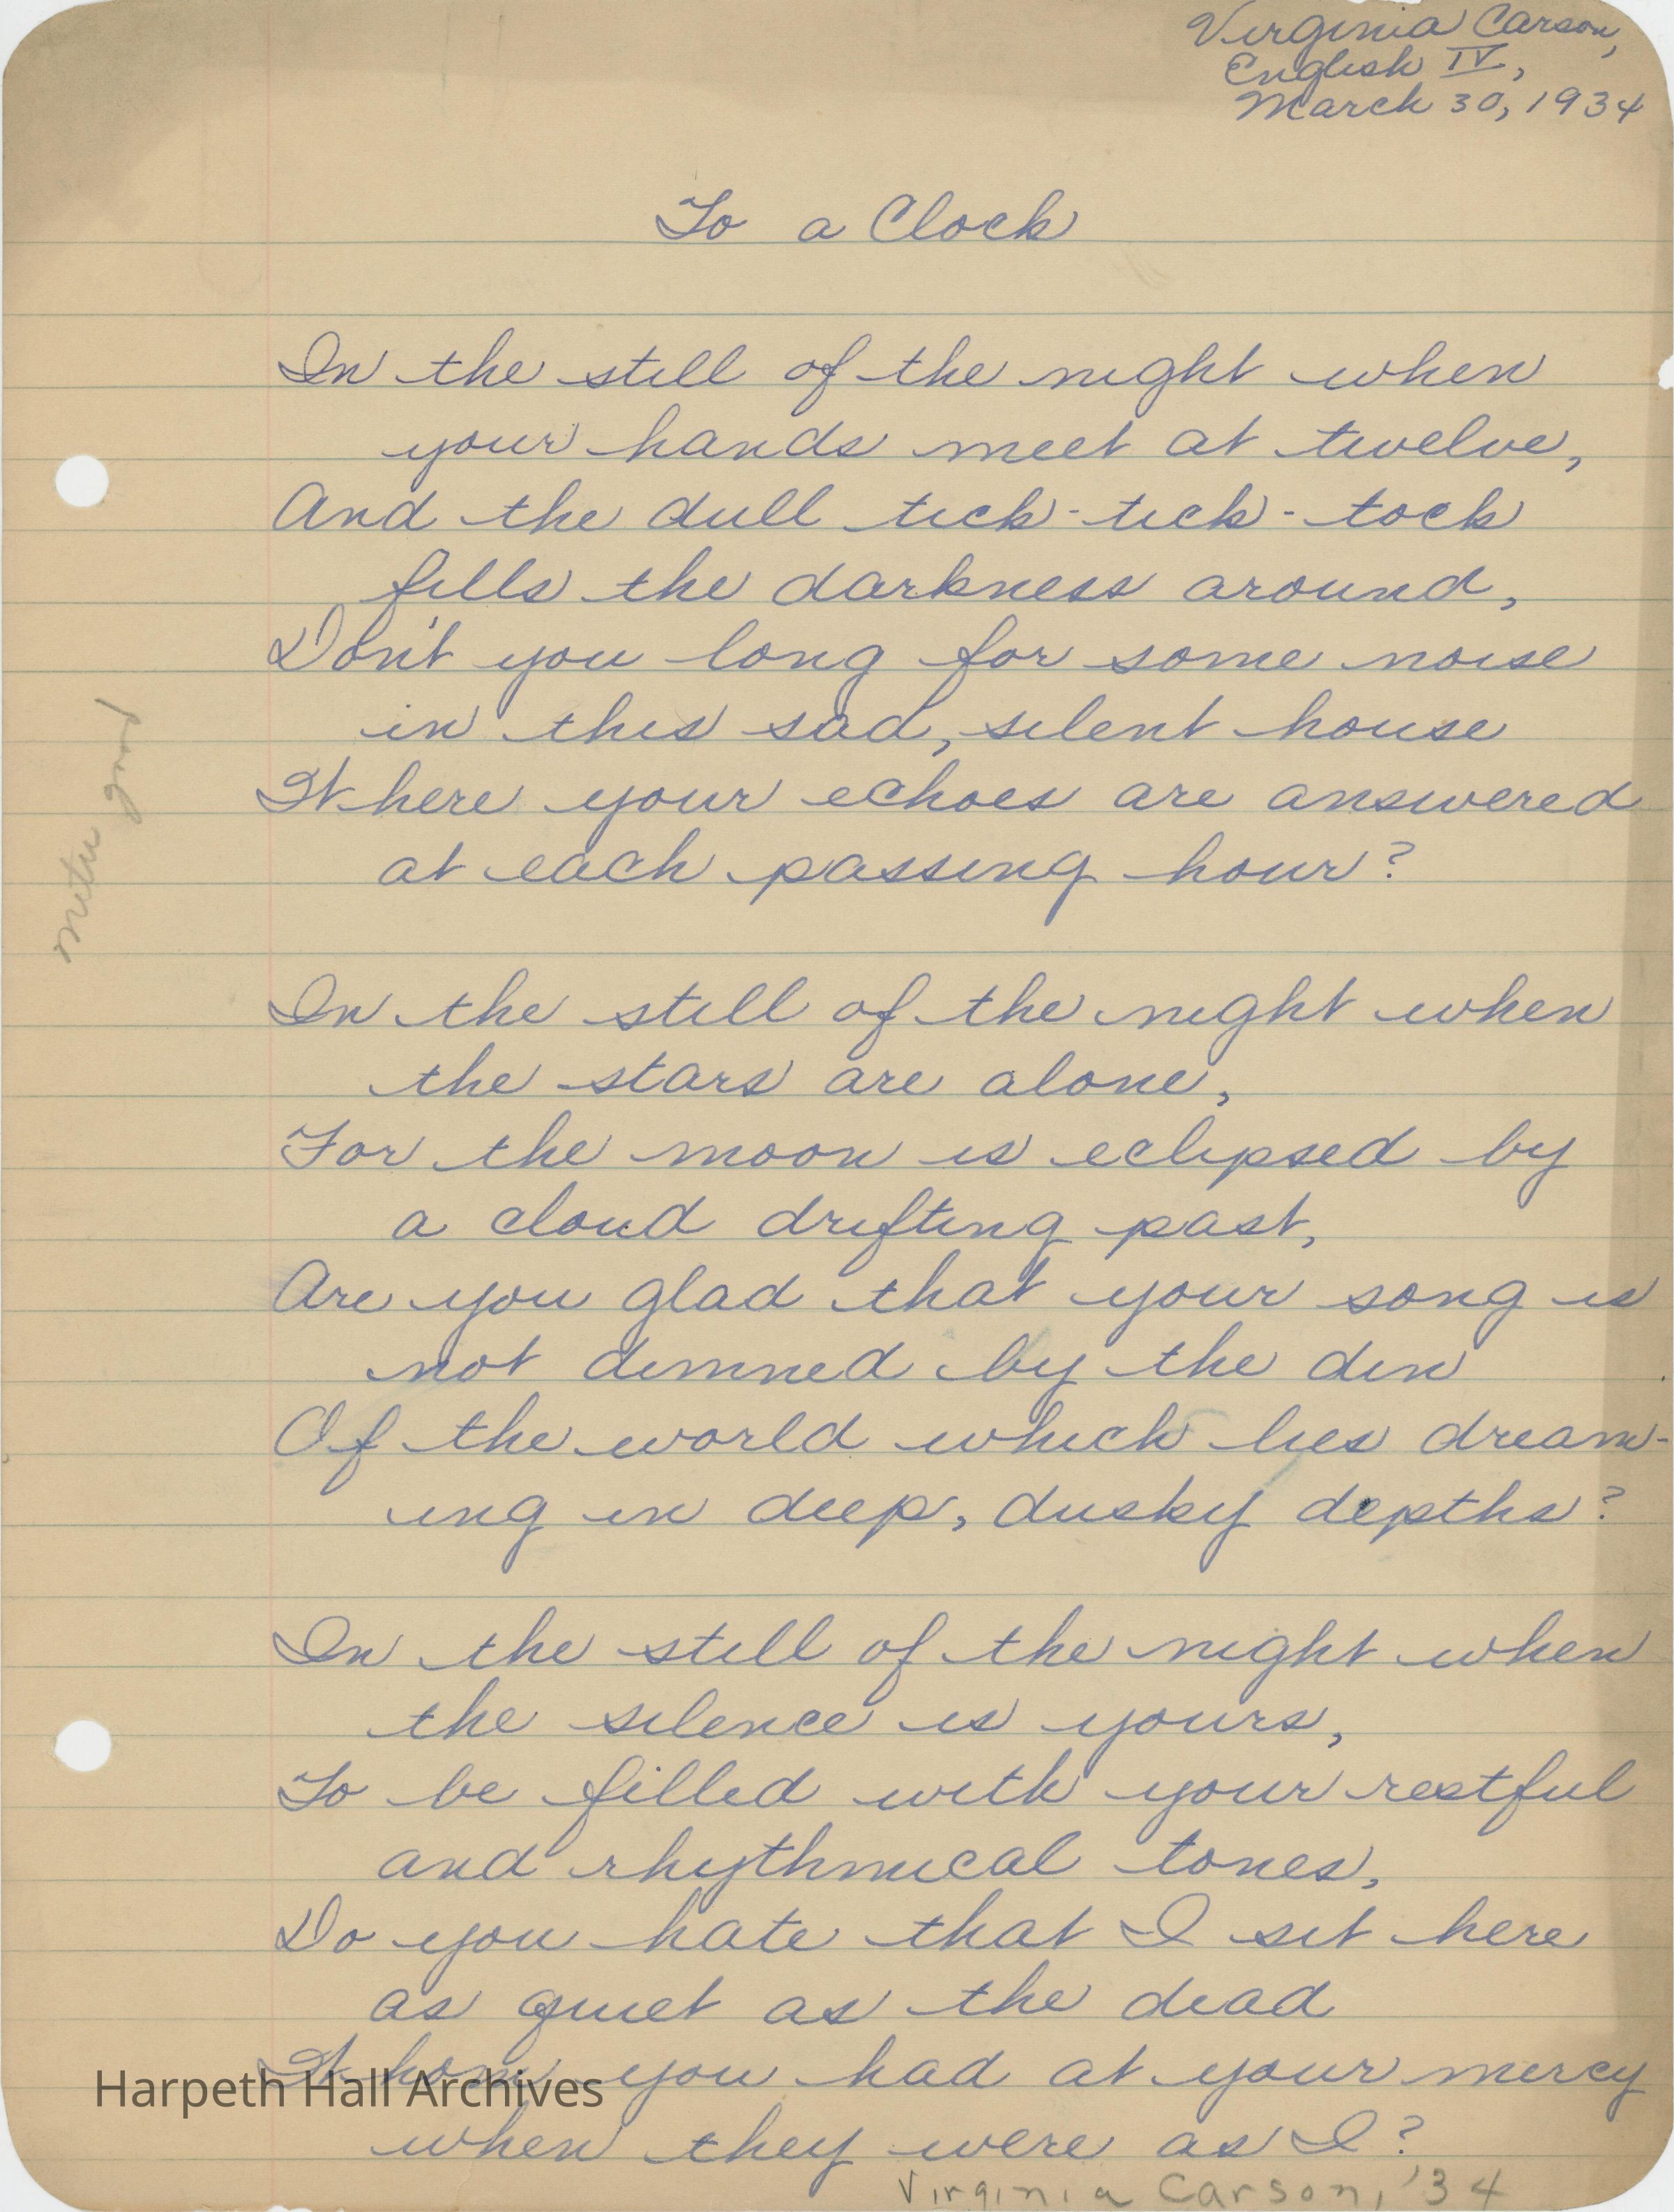 Virginia Carson,
English IV,
March 30, 1934
To a Clock
In the still of the night when
your hands meet at twelve,
And the dull tick-tick-tock
fills the darkness around,
Don't you long for some noise
in this sad, silent house
Where your echoes are answered
at each passing hour?
meter good
In the still of the night when
the stars are alone,
For the moon is eclipsed by
a cloud drifting past,
Are you glad that your song is
not dimned by the din
Of the world which lies dream-
ing in deep, dusky depths?
In the still of the night when
the silence is yours,
To be filled with your restful
and rhythmical tones,
Do you hate that I sit here
as quiet as the dead
Whom you had at your mercy
when they were as I?
Harpeth Hall Archives
Virginia Carson, '34